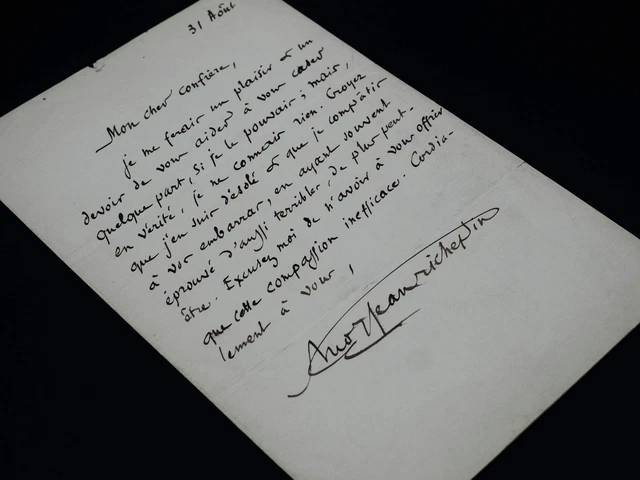 31 Août
Mon cher confrère,
je me ferais un plaisir et un
devoir de vous aider à vous caser
quelque part, si je le pouvais ; mais,
en vérité, je ne connais rien. Croyez
que j'en suis désolé et que je compatis
à vos embarras, en ayant souvent
éprouvé d'aussi terribles, de plus peut-
être. Excusez moi de n'avoir à vous offrir
que cette compassion inefficace. Cordia-
lement à vous,
Jean Richepin